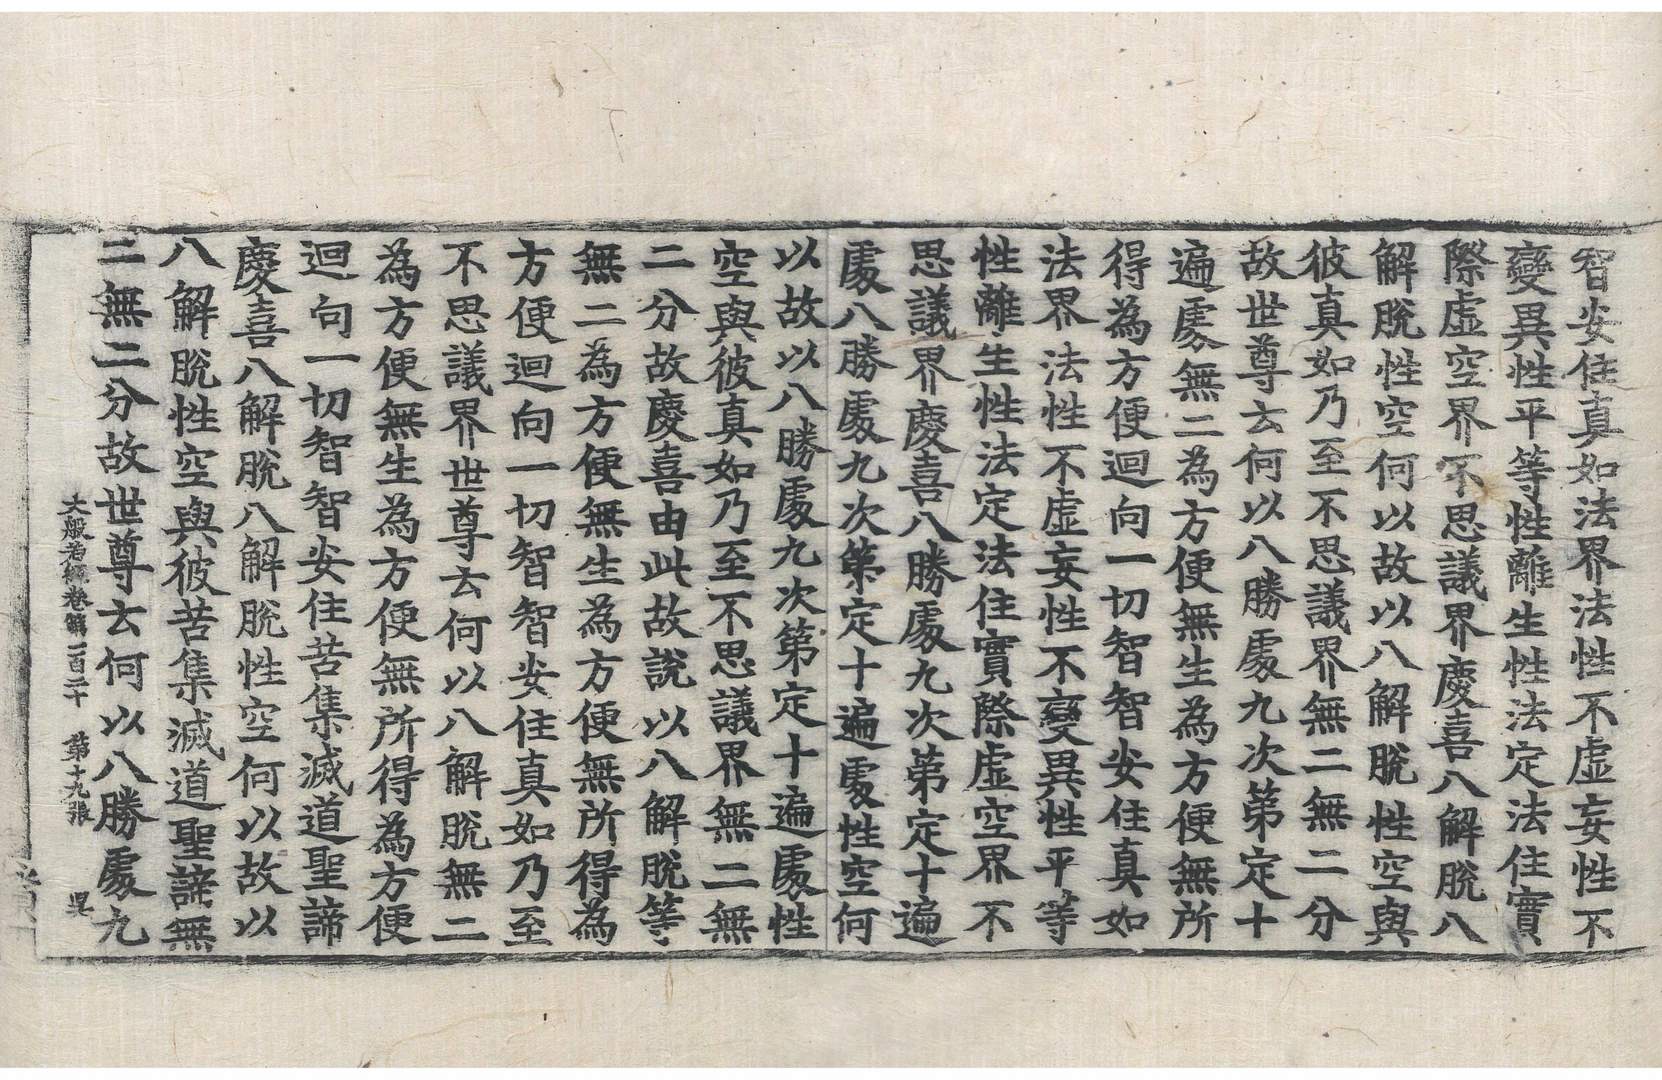 智安住真如法界法性不虛妄性不
變異性平等性離生性法定法住實
際虛空界不思議界慶喜八解脫八
解脫性空何以故以八解脫性空與
彼真如乃至不思議界無二無二分
故世尊云何以八勝處九次第定十
遍處無二為方便無生為方便無所
得為方便迴向一切智智安住真如
法界法性不虛妄性不變異性平等
性離生性法定法住實際虛空界不
思議界慶喜八勝處九次第定十遍
處八勝處九次第定十遍處性空何
以故以八勝處九次第定十遍處性
空與彼真如乃至不思議界無二無
二分故慶喜由此故說以八解脫等
無二為方便無生為方便無所得為
方便迴向一切智智安住真如乃至
不思議界世尊云何以八解脫無二
為方便無生為方便無所得為方便
迴向一切智智安住苦集滅道聖諦
慶喜八解脫八解脫性空何以故以
八解脫性空與彼苦集滅道聖諦無
二無二分故世尊云何以八勝處九
大般若經卷第一百二十 第十九張 吳